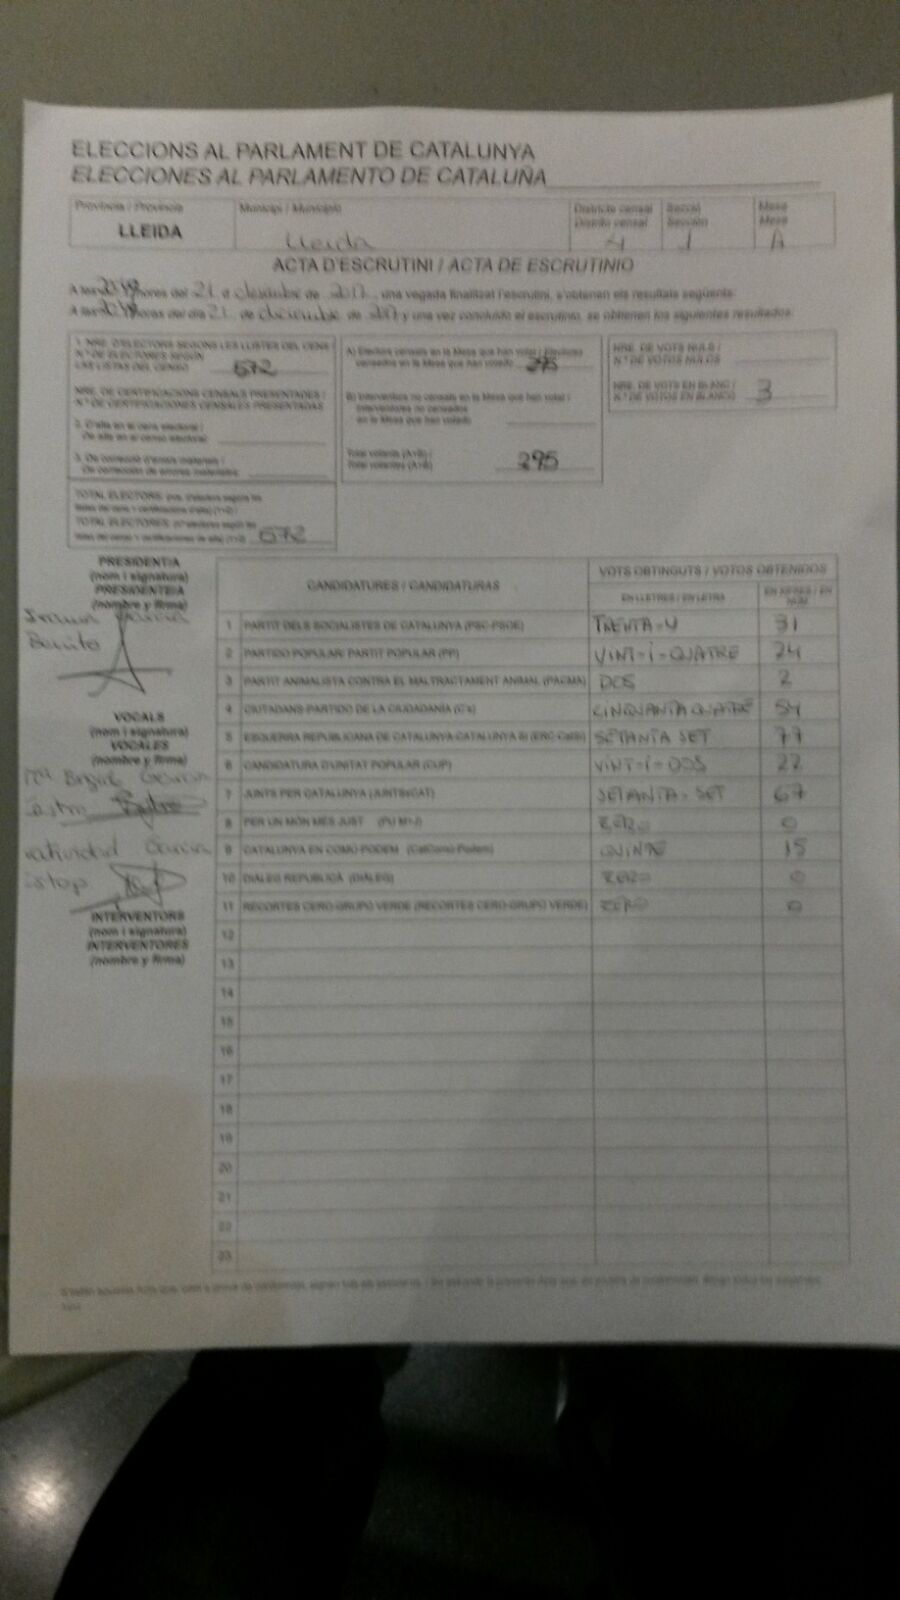 ELECCIONS AL PARLAMENT DE CATALUNYA
ELECCIONES AL PARLAMENTO DE CATALUÑA
Província / Provincia
LLEIDA
Municipi / Municipio
Lleida
Districte censal
Distrito censal
4
Secció
Sección
1
Mesa
Mesa
A
ACTA D'ESCRUTINI / ACTA DE ESCRUTINIO
A les hores del 21 d desembre de 2017, una vegada finalitzat l'escrutini, s'obtenen els resultats següents:
A las horas del día 21 de diciembre de 2017 y una vez concluido el escrutinio, se obtienen los siguientes resultados:
1. NRE. D'ELECTORS SEGONS LES LLISTES DEL CENS
Nº DE ELECTORES SEGÚN
LAS LISTAS DEL CENSO 672
NRE. DE CERTIFICACIONS CENSALS PRESENTADES /
Nº DE CERTIFICACIONES CENSALES PRESENTADAS
2. D'alta en el cens electoral /
De alta en el censo electoral
3. De correcció d'errors materials /
De corrección de errores materiales
TOTAL ELECTORS:
TOTAL ELECTORES: 672
A) Electors censats en la Mesa que han votat / Electores
censados en la Mesa que han votado 295
B) Interventors no censats en la Mesa que han votat /
Interventores no censados
en la Mesa que han votado
Total votants (A+B) /
Total votantes (A+B) 295
NRE. DE VOTS NULS /
Nº DE VOTOS NULOS
NRE. DE VOTS EN BLANC /
Nº DE VOTOS EN BLANCO 3
PRESIDENT/A
(nom i signatura)
PRESIDENTE/A
(nombre y firma)
Garcia
Benito
VOCALS
(nom i signatura)
VOCALES
(nombre y firma)
Mª Garcia
Castro
Garcia
INTERVENTORS
(nom i signatura)
INTERVENTORES
(nombre y firma)
CANDIDATURES / CANDIDATURAS
VOTS OBTINGUTS / VOTOS OBTENIDOS
EN LLETRES / EN LETRA
EN XIFRES / EN NÚM.
1 PARTIT DELS SOCIALISTES DE CATALUNYA (PSC-PSOE) TRENTA-U 31
2 PARTIDO POPULAR/ PARTIT POPULAR (PP) VINT-I-QUATRE 24
3 PARTIT ANIMALISTA CONTRA EL MALTRACTAMENT ANIMAL (PACMA) DOS 2
4 CIUTADANS-PARTIDO DE LA CIUDADANÍA (C's) CINQUANTA QUATRE 54
5 ESQUERRA REPUBLICANA DE CATALUNYA-CATALUNYA SÍ (ERC-CatSí) SETANTA SET 77
6 CANDIDATURA D'UNITAT POPULAR (CUP) VINT-I-DOS 22
7 JUNTS PER CATALUNYA (JUNTSxCAT) SEIANTA-SET 67
8 PER UN MÓN MÉS JUST (PUM+J) ZERO 0
9 CATALUNYA EN COMÚ-PODEM (CatComú-Podem) QUINZE 15
10 DIÀLEG REPUBLICÀ (DIÀLEG) ZERO 0
11 RECORTES CERO-GRUPO VERDE (RECORTES CERO-GRUPO VERDE) ZERO 0
12
13
14
15
16
17
18
19
20
21
22
23